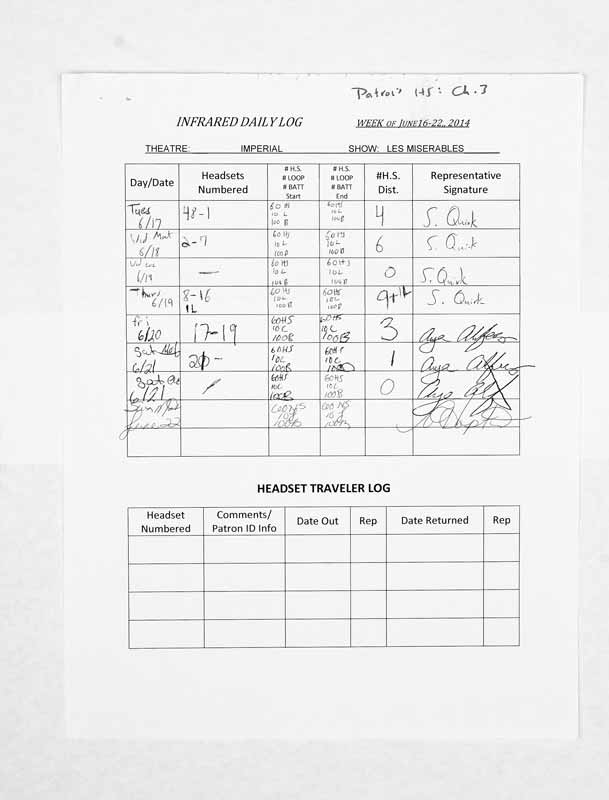 Patron's HS: Ch. 3
INFRARED DAILY LOG WEEK OF JUNE16-22,, 2014
THEATRE: IMPERIAL SHOW: LES MISERABLES
Day/Date Headsets Numbered # H.S. # LOOP # BATT Start # H.S. # LOOP # BATT End #H.S. Dist. Representative Signature
Tues 6/17 48-1 60 HS 10 L 100 B 60 HS 10 L 100 B 4 S. Quirk
Wed Mat 6/18 2-7 60 HS 10 L 100 B 60 HS 10 L 100 B 6 S. Quirk
6/18 — 60 HS 10 L 100 B 60 HS 10 L 100 B 0 S. Quirk
Thurs 6/19 8-16 1L 60 HS 10 L 100 B 60 HS 10 L 100 B 9+1L S. Quirk
Fri 6/20 17-19 60HS 10L 100B 60HS 10L 100B 3
Sat Mat 6/21 20- 60HS 10L 100B 60HS 10L 100B 1
Sat 6/21 60HS 10L 100B 60HS 10L 100B 0
Sun Mat June 22 60HS 10L 100B 60HS 10L 100B
HEADSET TRAVELER LOG
Headset Numbered Comments/ Patron ID Info Date Out Rep Date Returned Rep